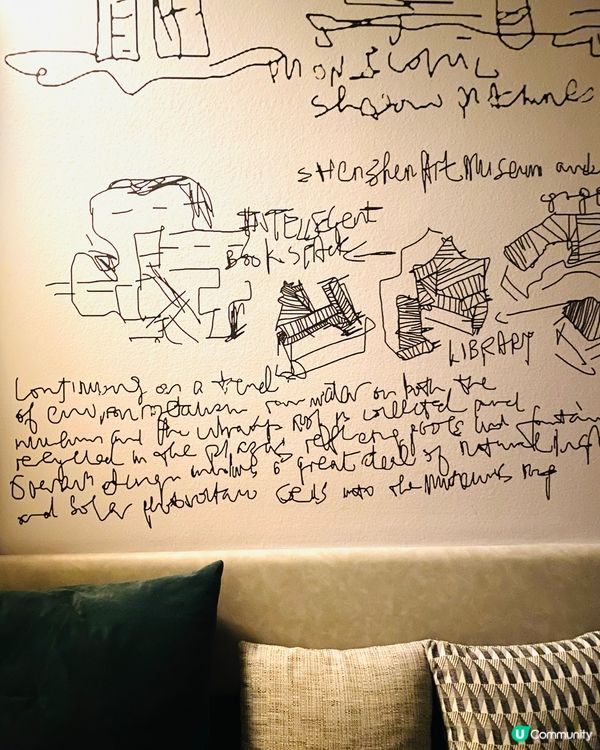 Shenzhen Art Museum and
INTELLEGENT
BOOK STACK
LIBRARY
Continuing on a trend
of environmentalism rain water on both the
museum and the library roof is collected and
recycled in the plazas reflecting pools and fountain
Overall design includes a great deal of natural
and solar photovoltaic cells into the museums
U Community